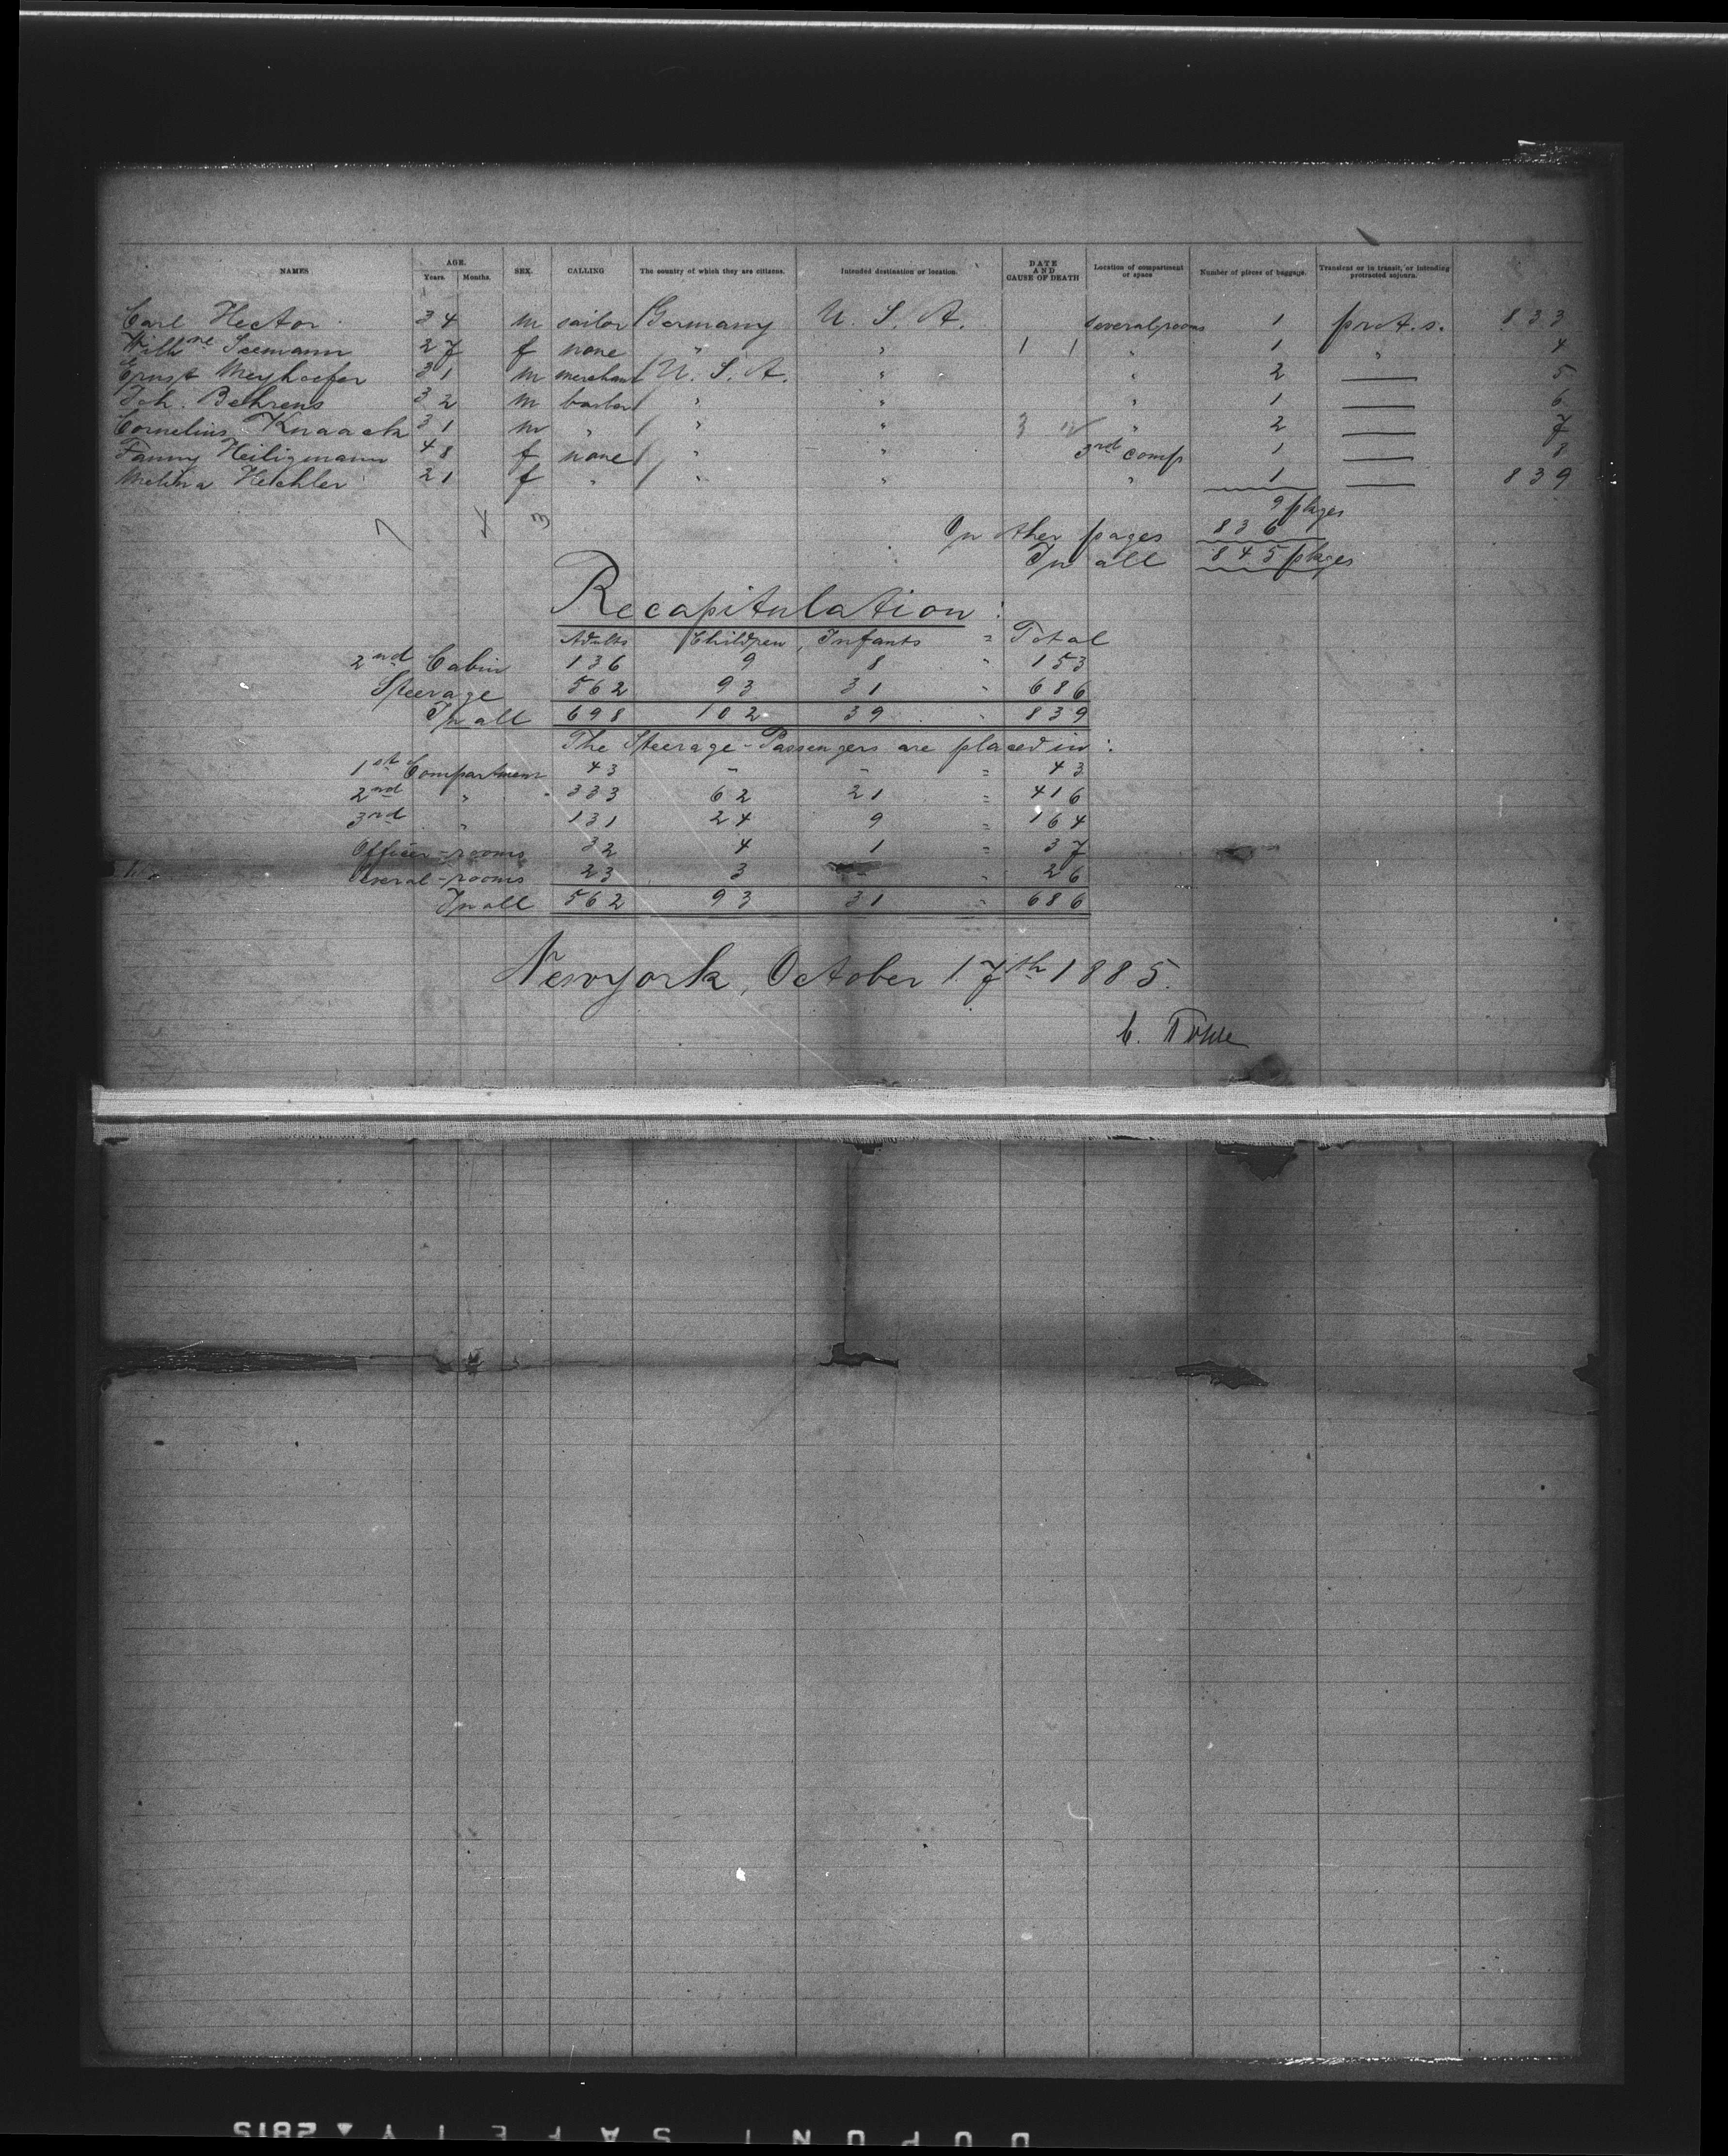 NAMES AGE. Years. Months. SEX. CALLING The country of which they are citizens. Intended destination or location. DATE AND CAUSE OF DEATH Location of compartment or space Number of pieces of baggage. Transient or in transit, or intending protracted sojourn.
Carl Hector 34 m sailor Germany U. S. A. several rooms 1 prot. s. 833
Willh ne Seemann 27 f none " " 1 1 " 1 " 4
Ernst Meyhoefer 31 m merchant U. S. A. " " 2 — 5
Joh. Behrens 32 m barber " " " 1 — 6
Cornelius Knaack 31 m " " " 3 " 2 — 7
Fanny Heiligmann 48 f none " " 3rd comp 1 — 8
Melina Kechler 21 f " " " " 1 — 839
9 pkges
7 4 3
On other pages 836
In all 845 pkges
Recapitulation:
Adults Children Infants = Total
2nd Cabin 136 9 8 " 153
Steerage 562 93 31 " 686
In all 698 102 39 " 839
The Steerage-Passengers are placed in:
1st Compartment 43 - - = 43
2nd " 333 62 21 = 416
3rd " 131 24 9 = 164
Officer-rooms 32 4 1 = 37
Several-rooms 23 3 - " 26
In all 562 93 31 " 686
Newyork, October 17th 1885.
DUPONT SAFETY 2815